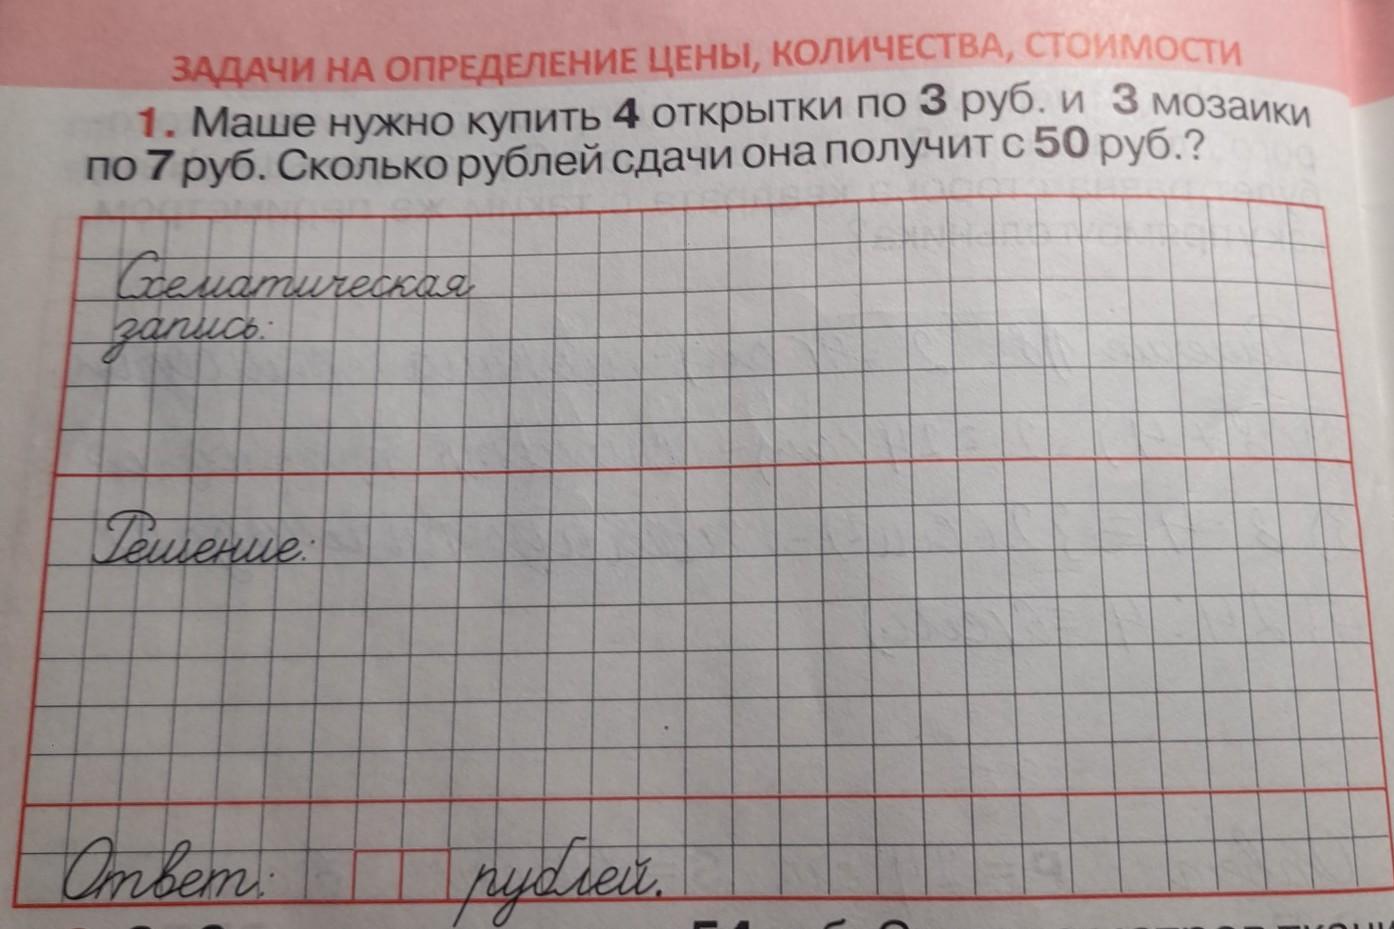 ЗАДАЧИ НА ОПРЕДЕЛЕНИЕ ЦЕНЫ, КОЛИЧЕСТВА, СТОИМОСТИ
1. Маше нужно купить 4 открытки по 3 руб. и 3 мозаики
по 7 руб. Сколько рублей сдачи она получит с 50 руб.?
Схематическая
запись:
Решение:
Ответ: рублей.